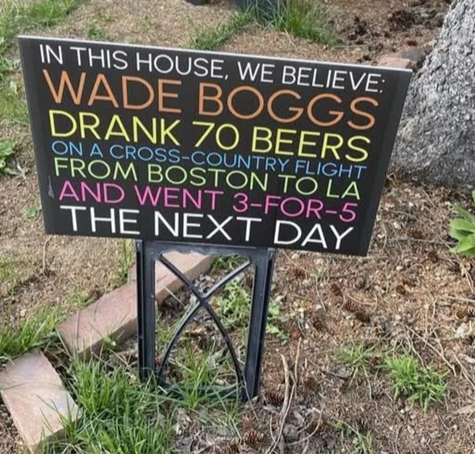 IN THIS HOUSE, WE BELIEVE:
WADE BOGGS
DRANK 70 BEERS
ON A CROSS-COUNTRY FLIGHT
FROM BOSTON TO LA
AND WENT 3-FOR-5
THE NEXT DAY